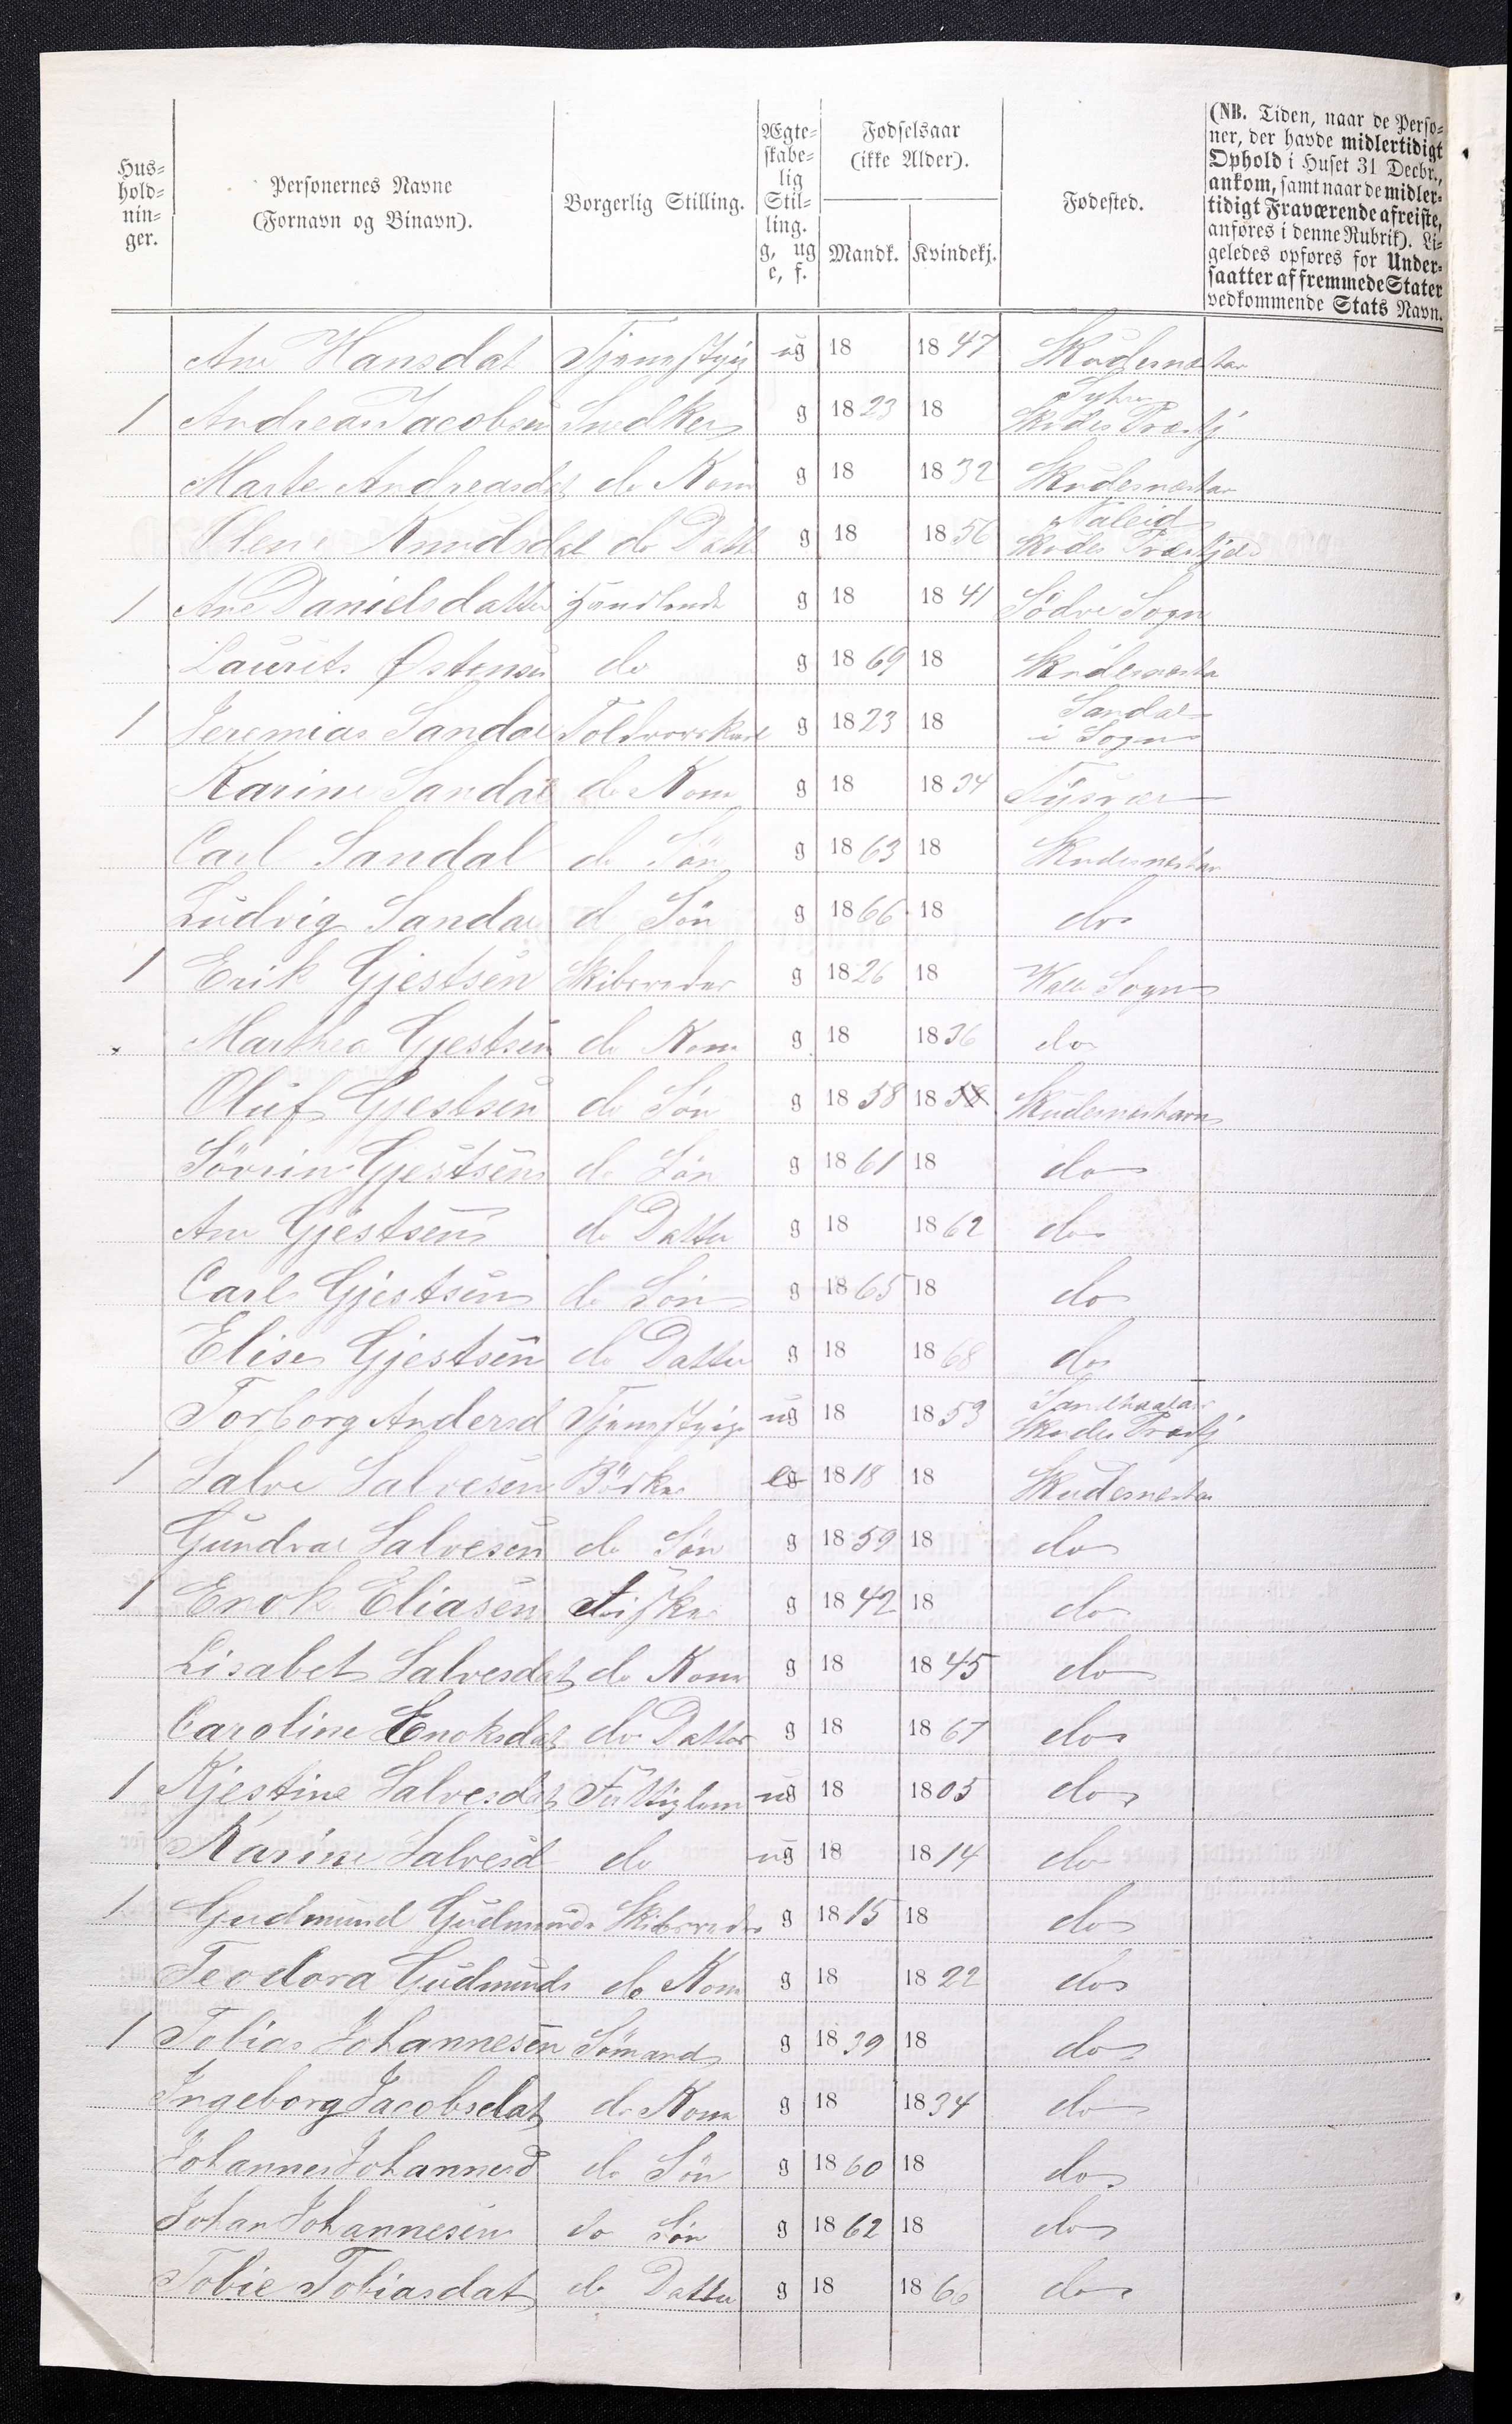 Hus-
hold-
nin-
ger.
Personernes Navne
(Fornavn og Binavn).
Borgerlig Stilling.
Ægte-
skabe-
lig
Stil-
ling.
g, ug
e, f.
Fødselsaar
(ikke Alder).
Mandk. Kvindekj.
Fødested.
(NB. Tiden, naar de Perso-
ner, der havde midlertidigt
Ophold i Huset 31 Decbr.,
ankom, samt naar de midler-
tidigt Fraværende afreiste,
anføres i denne Rubrik). Li-
geledes opføres for Under-
saatter af fremmede Stater
vedkommende Stats Navn.
Ane Hansdat ug 18 1847
1 Andreas Jacobsen Snedker g 1823 18 Skudes Præstj
Marte Andreasdat do Kone g 18 1832 Skudesneshav
Olene Knudsdat do Datt g 18 1856 Skudes Præstjeld
1 Ane Danielsdatter g 18 1841 Södre Sogn
Laurits Østensen do g 1869 18 Skudesnesha
1 Jeremias Sandal g 1823 18 Sandal i Sogn
Karine Sandal do Kone g 18 1834 Tysvær
Carl Sandal do Sön g 1863 18 Skudesneshav
Ludvig Sandal d Sön g 1866 18 do
1 Erik Gjestsen Skibsreder g 1826 18 Sogn
Marthea Gjestsen do Kone g 18 1836 do
Oluf Gjestsen do Sön g 1858 18 Skudesneshavn
Sövrin Gjestsen do Sön g 1861 18 do
Ane Gjestsen do Datter g 18 1862 do
Carl Gjestsen do Sön g 1865 18 do
Elise Gjestsen do Datter g 18 1868 do
Torborg Andersd ug 18 1853 Skudes Præstj
1 Salve Salvesen Bödker e 1818 18 Skudesneshav
Gundval Salvesen do Sön g 1859 18 do
1 Enok Eliasen Fisker g 1842 18 do
Lisabet Salvesdat do Kone g 18 1845 do
Caroline Enoksdat do Datter g 18 1867 do
1 Kjestine Salvesdat Fattiglem ug 18 1805 do
Karine Salvesd do ug 18 1814 do
1 Gudmund Gudmunds Skibsreder g 1815 18 do
Teodora Gudmunds do Kone g 18 1822 do
1 Tobias Johannesen Sömand g 1839 18 do
Ingeborg Jacobsdat do Kone g 18 1834 do
Johannes Johannesd do Sön g 1860 18 do
Johan Johannesen do Sön g 1862 18 do
Tobie Tobiasdat do Datter g 18 1866 do